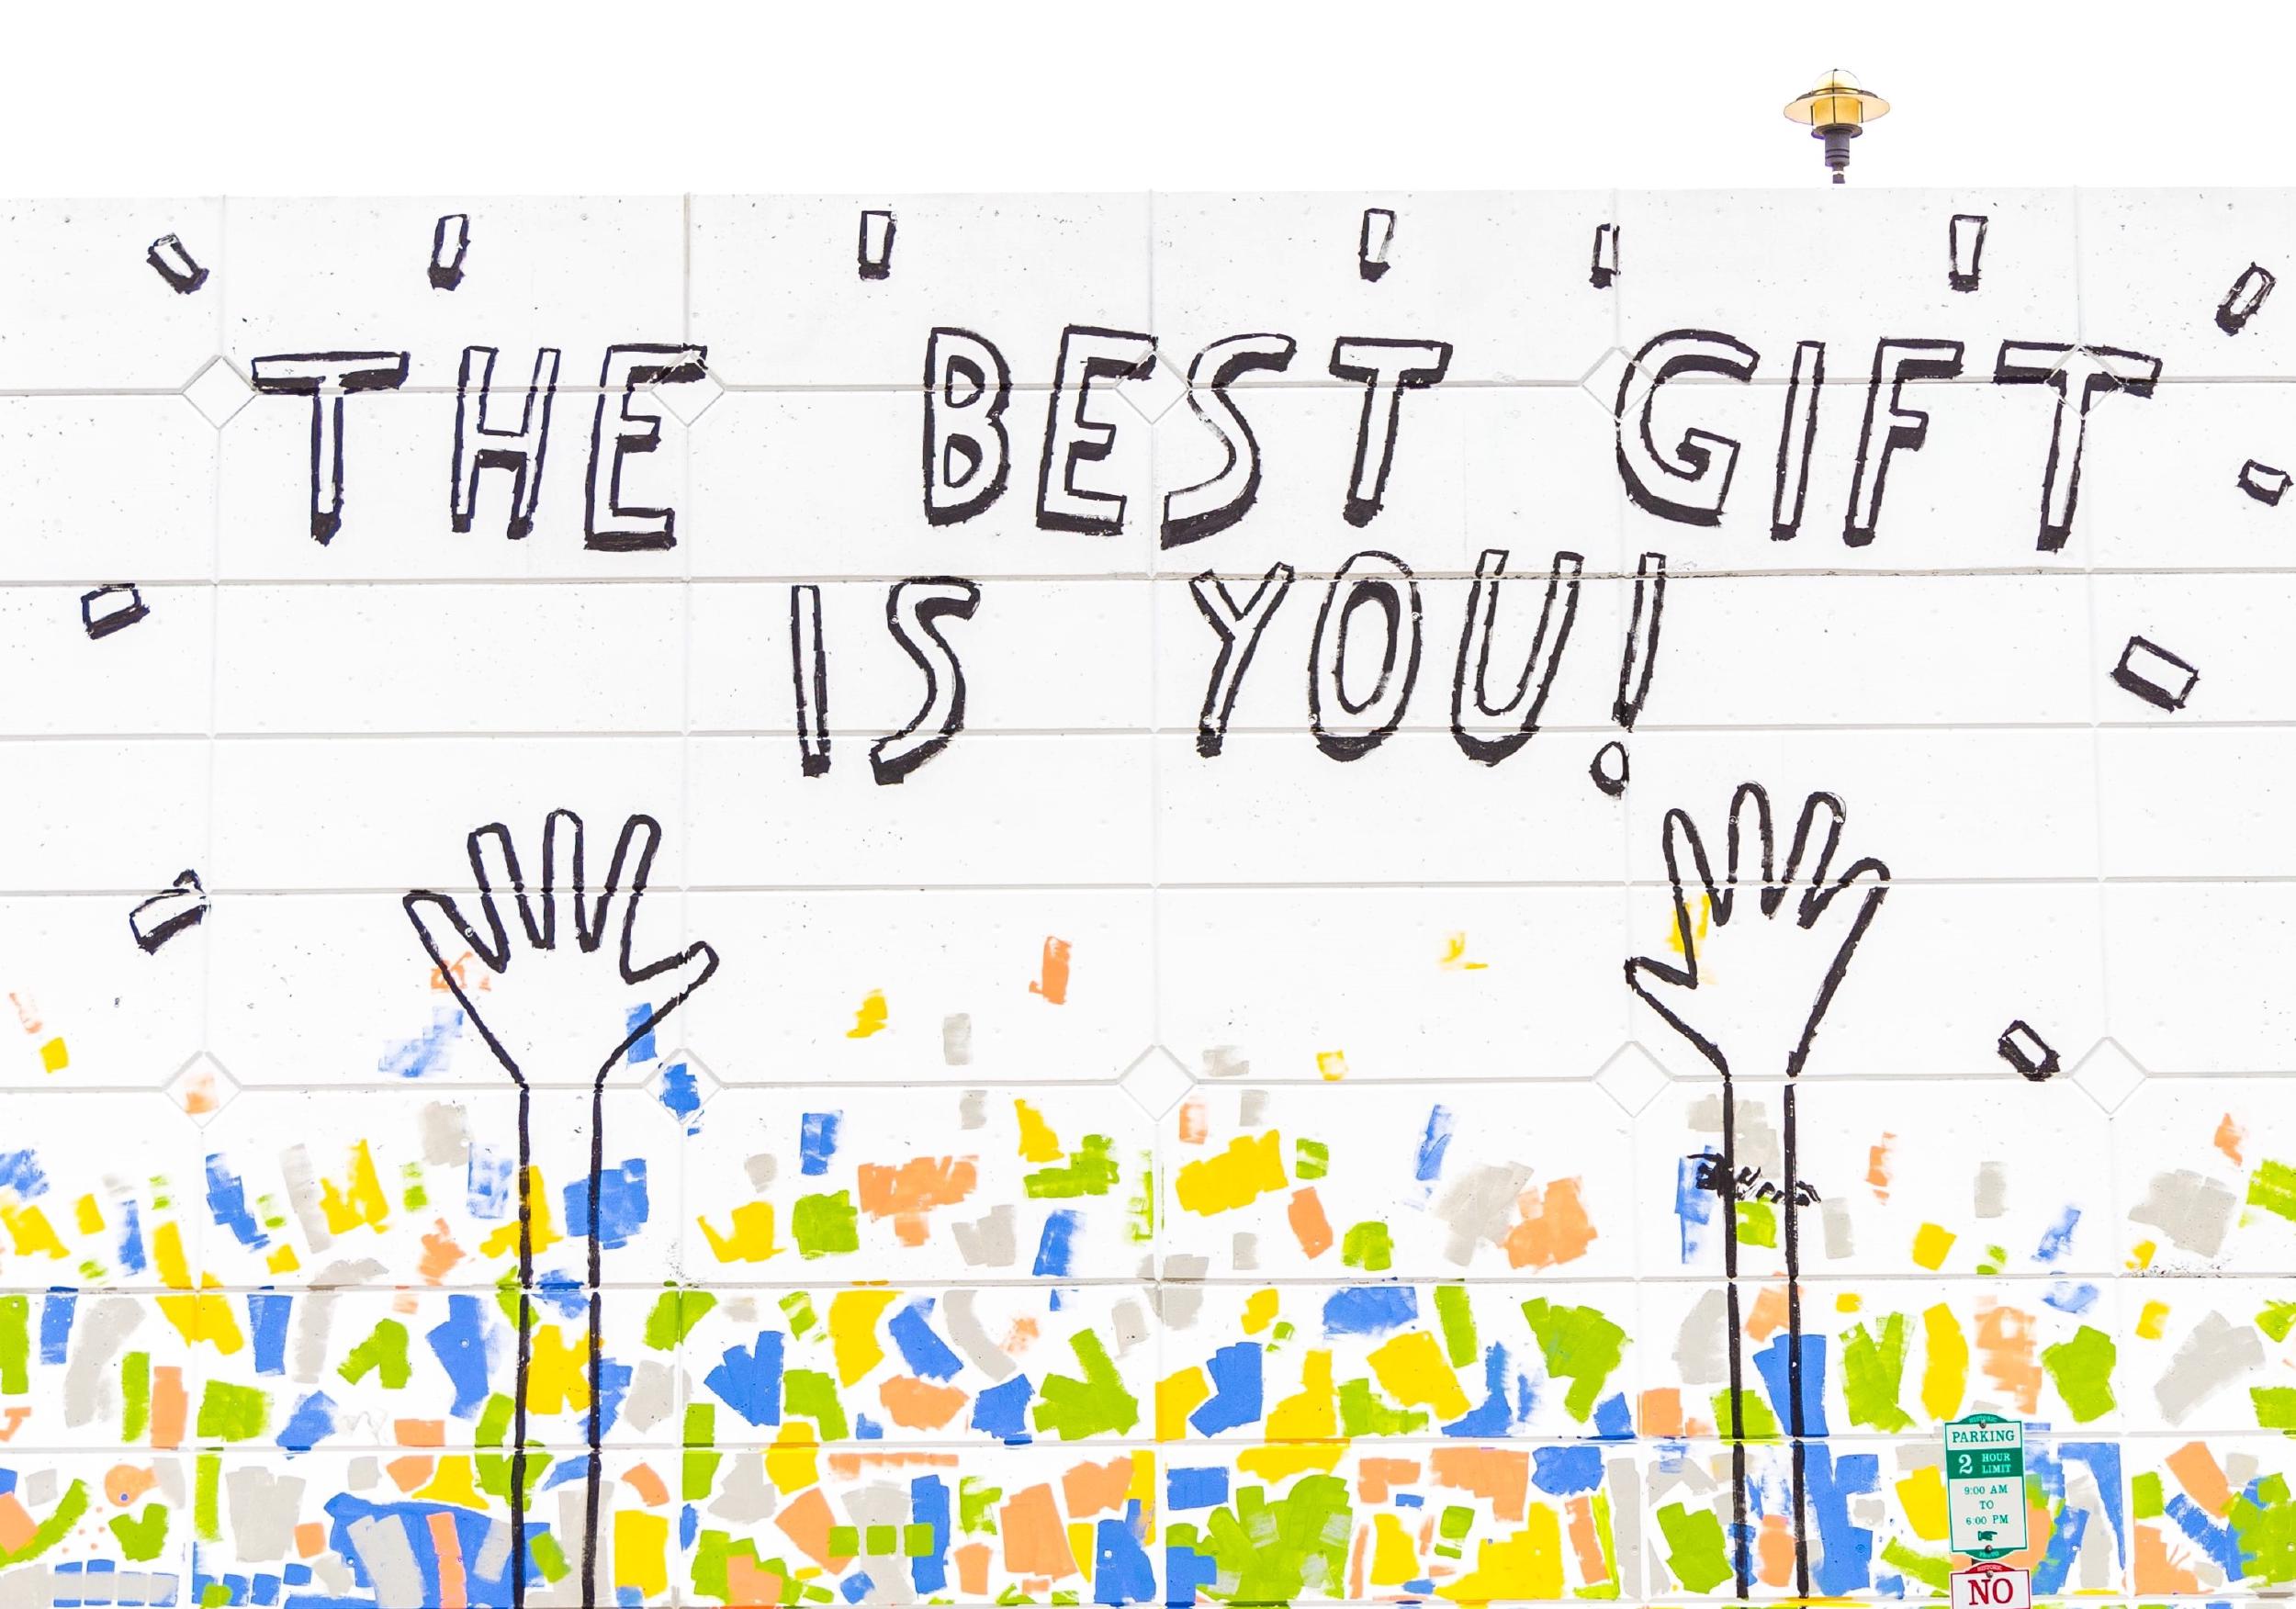 THE BEST GIFT
IS YOU!
PARKING
2 HOUR
LIMIT
9:00 AM
TO
6:00 PM
NO